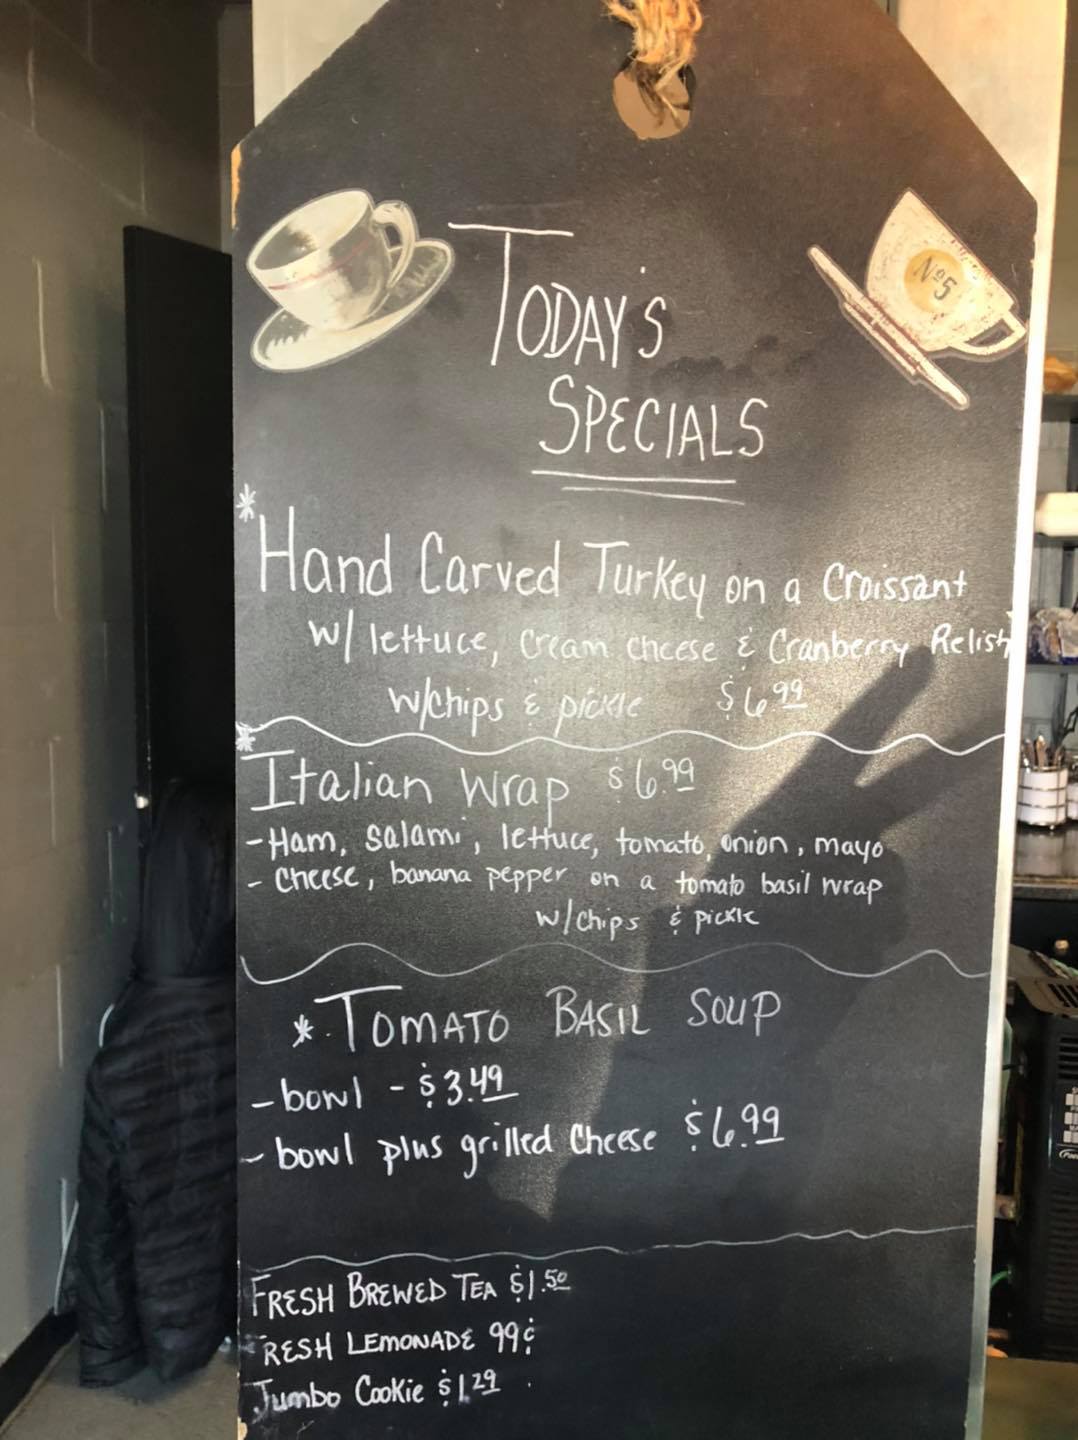 Nº5
TODAY'S
SPECIALS
* Hand Carved Turkey on a Croissant
w/ lettuce, cream cheese & Cranberry Relish
w/chips & pickle $6.99
* Italian Wrap $6.99
- Ham, salami, lettuce, tomato, onion, mayo
- Cheese, banana pepper on a tomato basil wrap
w/chips & pickle
* TOMATO BASIL SOUP
- bowl - $3.49
- bowl plus grilled Cheese $6.99
FRESH BREWED TEA $1.50
FRESH LEMONADE 99¢
Jumbo Cookie $1.29